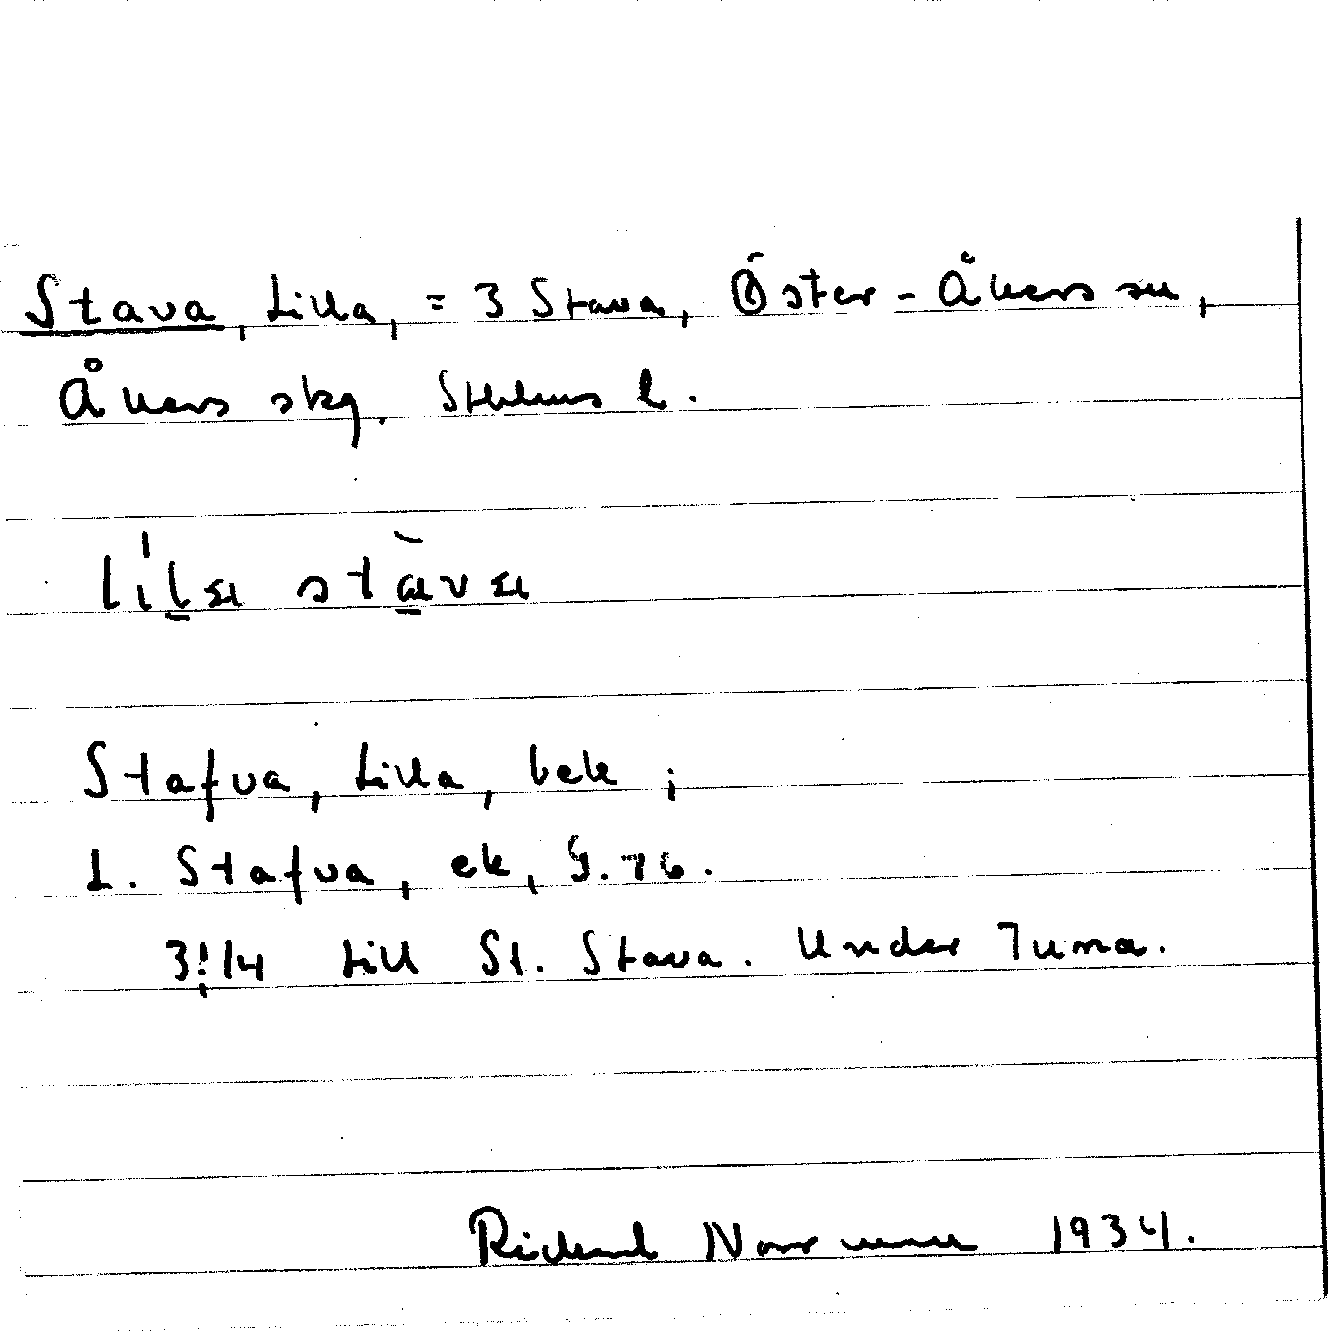 Stava, Lilla, = 3 Stava, Öster-Åkers sn,
Åkers skg. Sthlms l.
Stafva, Lilla, bek;
L. Stafva, ek, J. 76.
3!14 till St. Stava. Under Tuna.
Richard Norrman 1934.